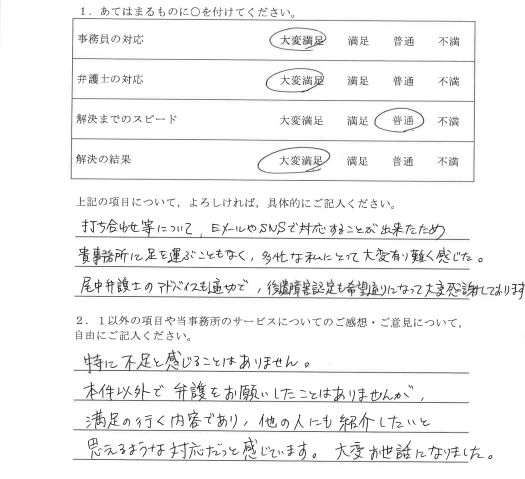 1．あてはまるものに○を付けてください。
事務員の対応 大変満足 満足 普通 不満
弁護士の対応 大変満足 満足 普通 不満
解決までのスピード 大変満足 満足 普通 不満
解決の結果 大変満足 満足 普通 不満
上記の項目について，よろしければ，具体的にご記入ください。
打ち合わせ等について，EメールやSNSで対応することが出来たため
貴事務所に足を運ぶこともなく，多忙な私にとって大変有り難く感じた。
尾中弁護士のアドバイスも適切で，後遺障害認定も希望通りになって大変感謝しております
2．1以外の項目や当事務所のサービスについてのご感想・ご意見について，
自由にご記入ください。
特に不足と感じることはありません。
本件以外で弁護をお願いしたことはありませんが，
満足の行く内容であり，他の人にも紹介したいと
思えるような対応だったと感じています。 大変お世話になりました。